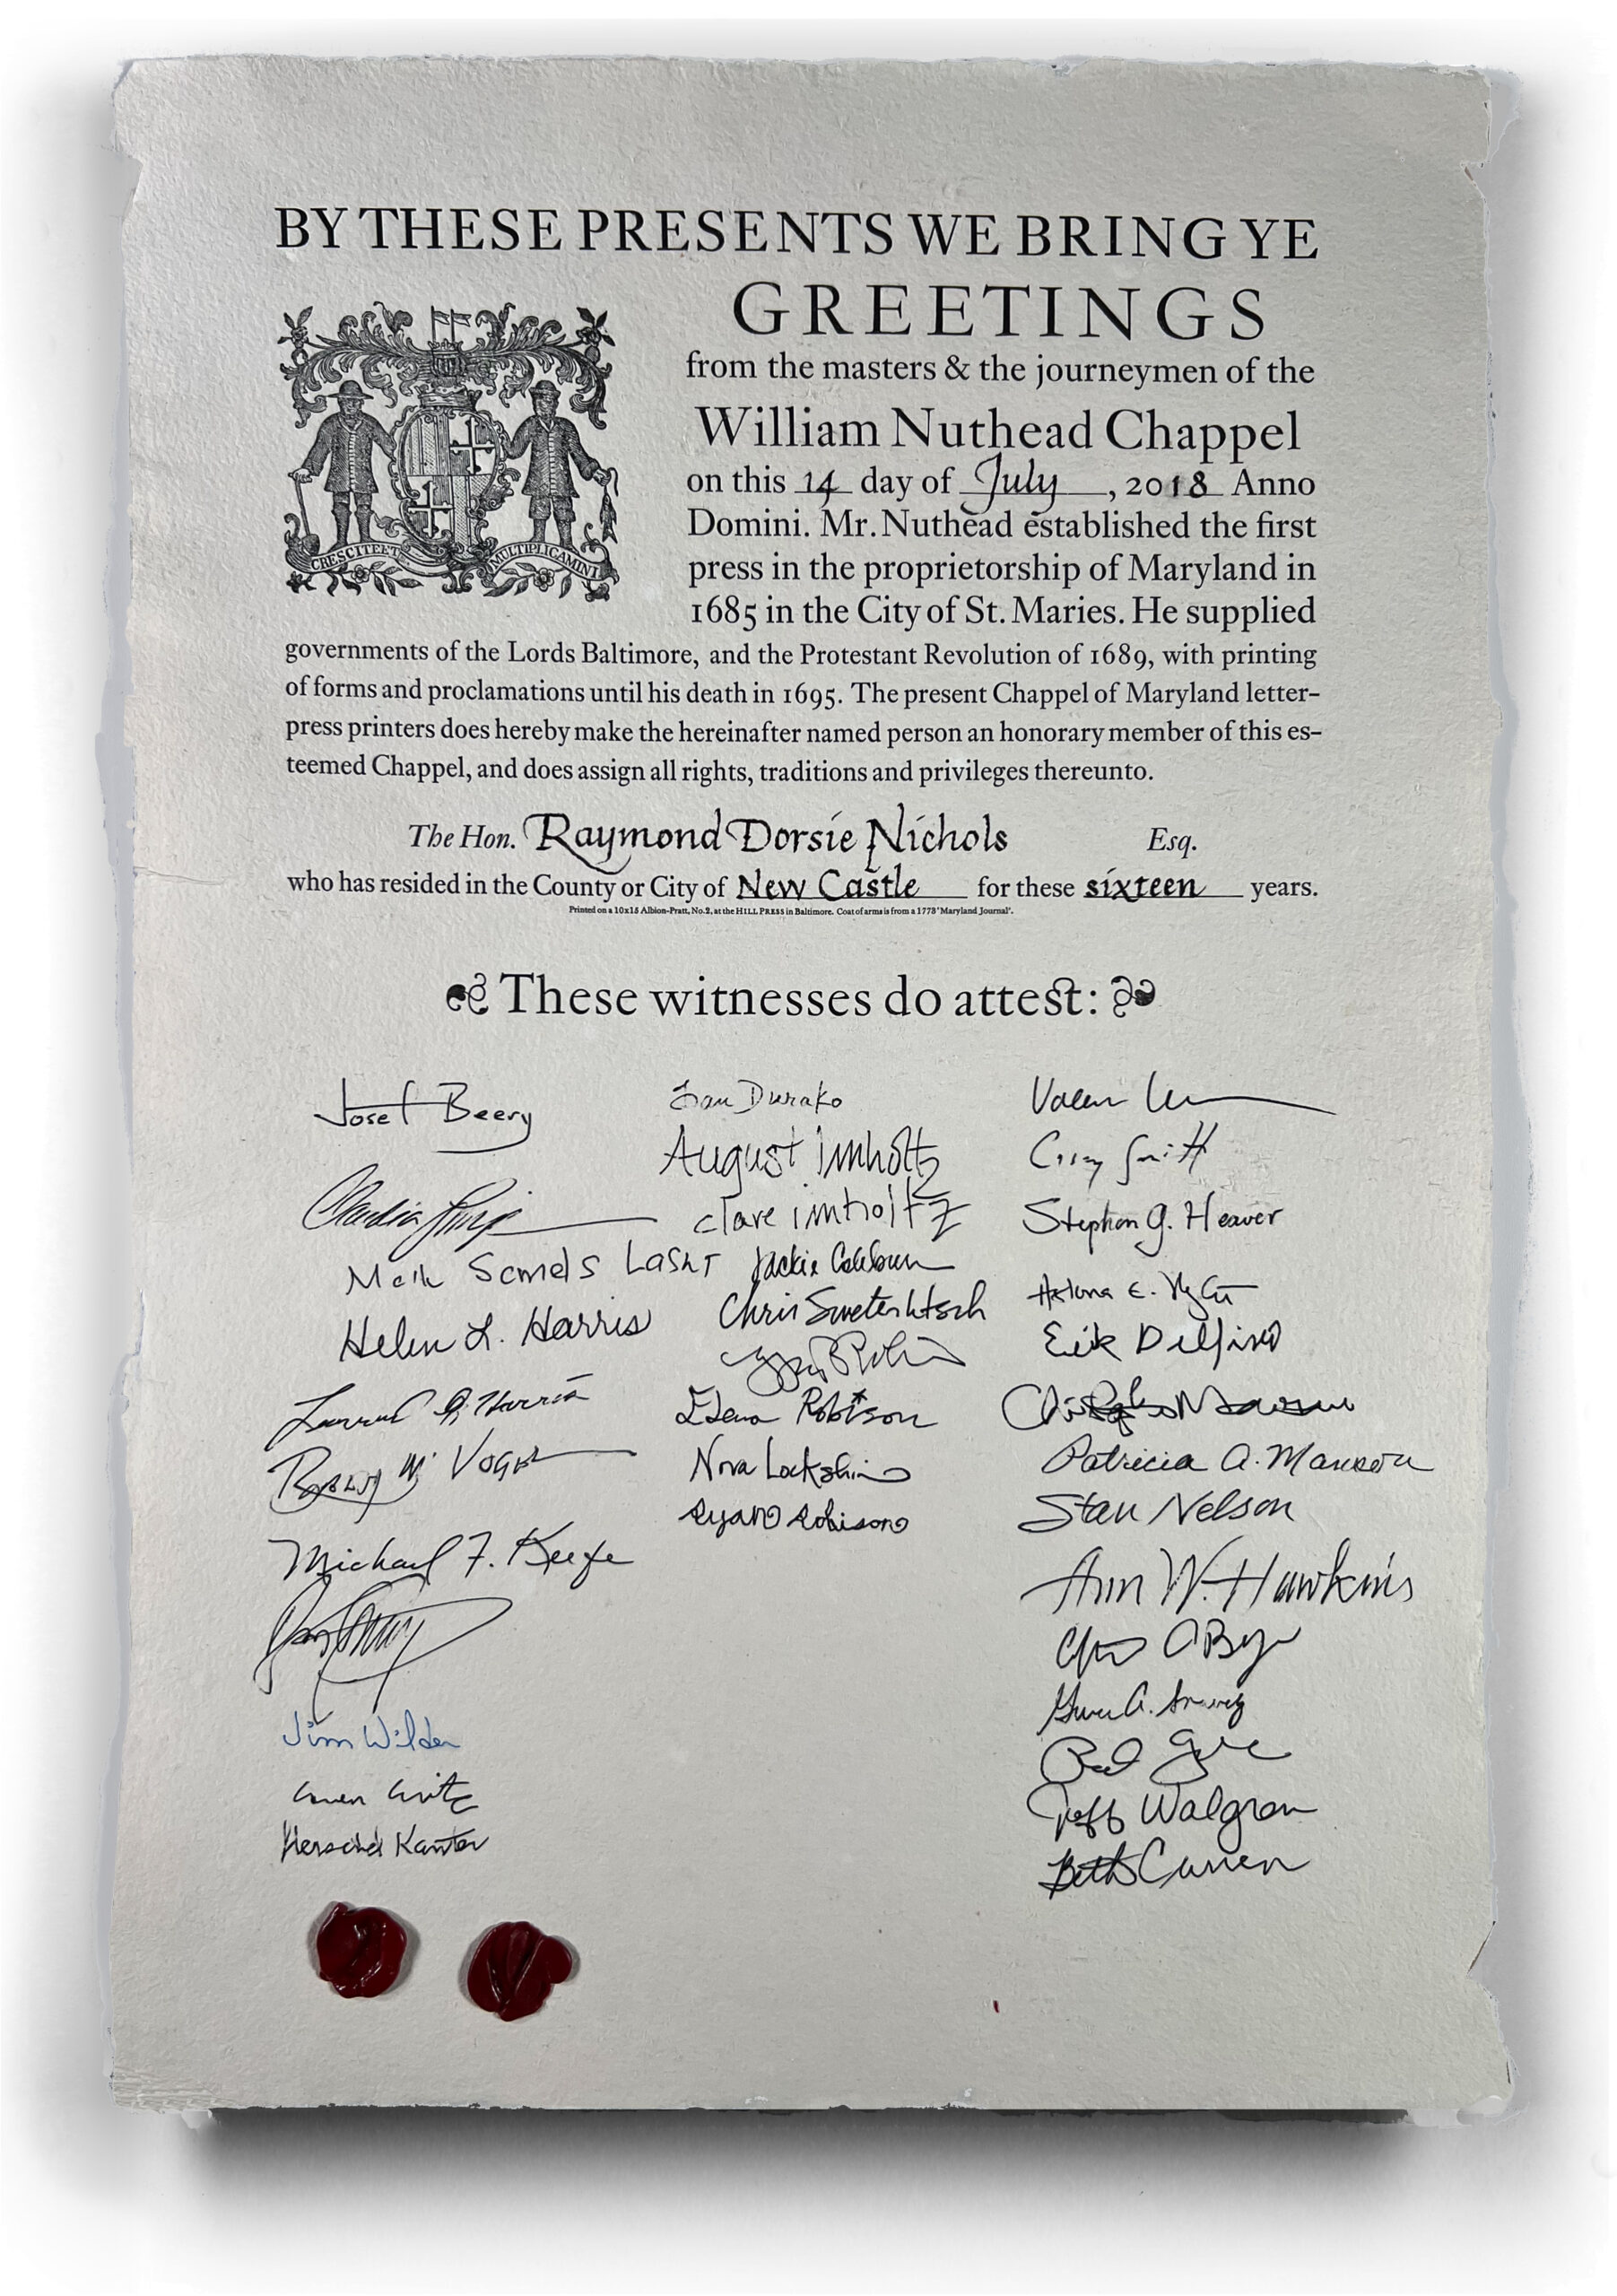 BY THESE PRESENTS WE BRING YE
GREETINGS
from the masters & the journeymen of the
William Nuthead Chappel
on this 14 day of July, 2018 Anno
Domini. Mr. Nuthead established the first
press in the proprietorship of Maryland in
1685 in the City of St. Maries. He supplied
CRESCITE ET MULTIPLICAMINI
governments of the Lords Baltimore, and the Protestant Revolution of 1689, with printing
of forms and proclamations until his death in 1695. The present Chappel of Maryland letter-
press printers does hereby make the hereinafter named person an honorary member of this es-
teemed Chappel, and does assign all rights, traditions and privileges thereunto.
The Hon. Raymond Dorsie Nichols Esq.
who has resided in the County or City of New Castle for these sixteen years.
Printed on a 10x15 Albion-Pratt, No. 2, at the HILL PRESS in Baltimore. Coat of arms is from a 1773 'Maryland Journal'.
These witnesses do attest:
Josef Beery
Claudia
Helen L. Harris
Michael F. Keefe
Jim Wilder
Herschel Kanter
Durako
August Imholtz
Clare Imholtz
Jackie
Chris
Robison
Nora Lockshin
Ryan Robison
Stephen G. Heaver
Erik Delfino
Patricia A. Manson
Stan Nelson
Ann W. Hawkins
Jeff Walgran
Beth Curren